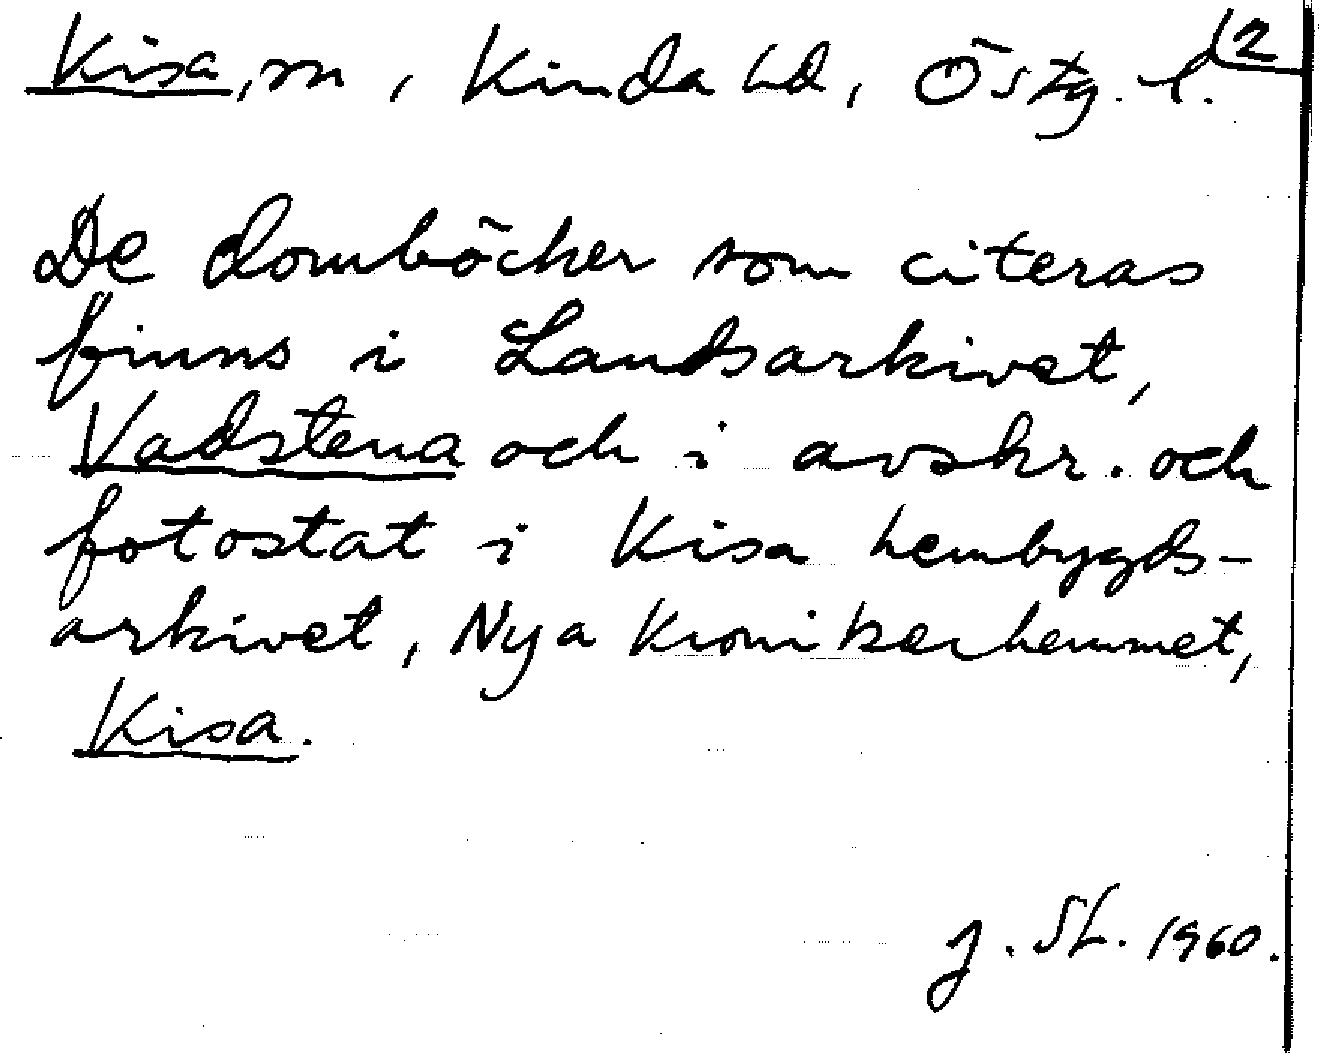 12
Kisa, sn, Kinda hd, Östg. l.
De domböcker som citeras
finns i Landsarkivet,
Vadstena och i avskr. och
fotostat i Kisa hembygds-
arkivet, Nya Kronikerhemmet,
Kisa.
J. St. 1960.